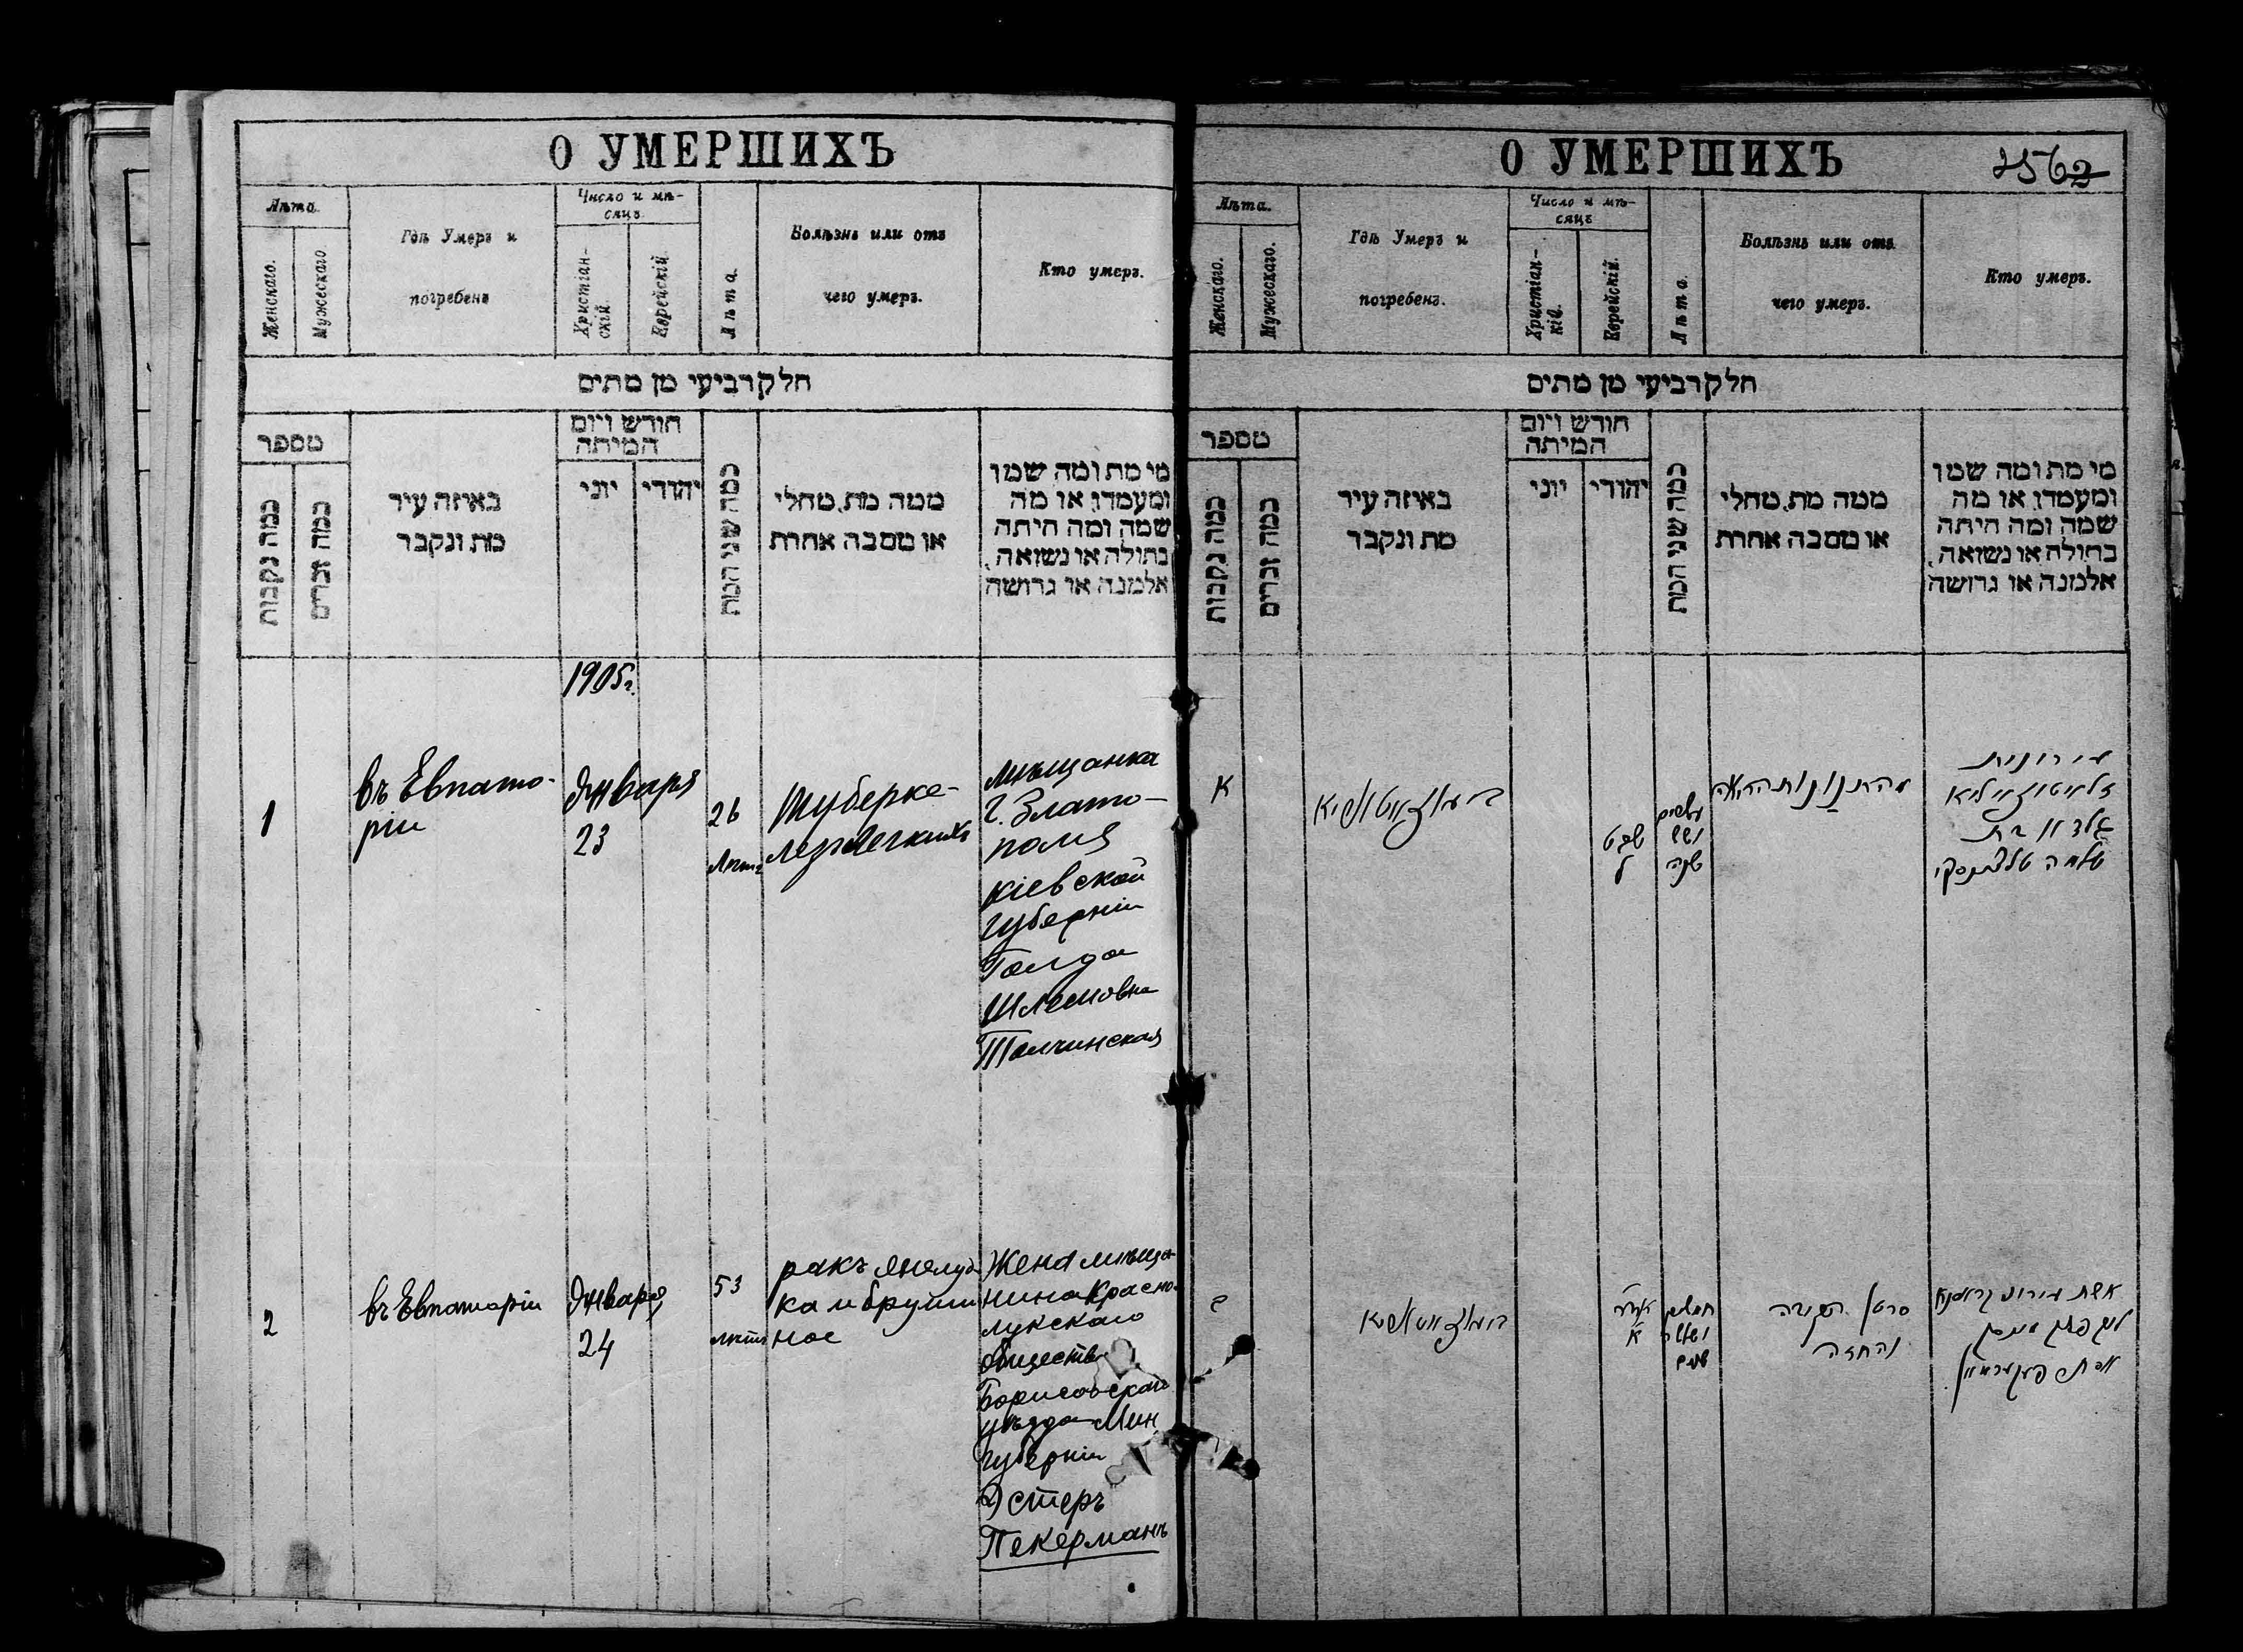 О УМЕРШИХЪ
Лѣта.
Женскаго.
Мужескаго
Гдѣ Умеръ и
погребенъ
Число и мѣ-
сяцъ
Христіан-
скій.
Еврейскій.
Лѣта.
Болѣзнь или отъ
чего умеръ.
Кто умеръ.
חלק רביעי מן מתים
מספר
כמה נקבות
כמה זכרים
באיזה עיר
מת ונקבר
חודש ויום
המיתה
יוני
יהודי
כמה שני המת
ממה מת, מחלי
או מסבה אחרת
מי מת ומה שמו
ומעמדו, או מה
שמה ומה היתה
בתולה או נשואה,
אלמנה או גרושה
1905г.
1
въ Евпато-
ріи
Января
23
26
лѣтъ
Туберке-
лезъ легкихъ
мѣщанка
г. Злато-
поля
Кіевской
губерніи
Голда
Шлемовна
Толчинская
2
въ Евпаторіи
Января
24
53
лѣтъ
ракъ желуд-
ка и брюши
ное
Жена мѣща-
нина Красно-
лукскаго
общества
Борисовскаго
уѣзда Мин.
губерніи
Эстеръ
Пекерманъ
О УМЕРШИХЪ
2562
Лѣта.
Женскаго.
Мужескаго.
Гдѣ Умеръ и
погребенъ.
Число и мѣ-
сяцъ
Христіан-
кій.
Еврейскій.
Лѣта.
Болѣзнь или отъ
чего умеръ.
Кто умеръ.
חלק רביעי מן מתים
מספר
כמה נקבות
כמה זכרים
באיזה עיר
מת ונקבר
חודש ויום
המיתה
יוני
יהודי
כמה שני המת
ממה מת, מחלי
או מסבה אחרת
מי מת ומה שמו
ומעמדו, או מה
שמה ומה היתה
בתולה או נשואה,
אלמנה או גרושה
א
שבט
ל
עשרים
ושש
שנה
עירונית
גאלדא בת
שלמה טלצינסקי
ב
אדר
א
חמשים
ושלש
שנים
סרטן הקיבה
והחזה
אשת עירוני